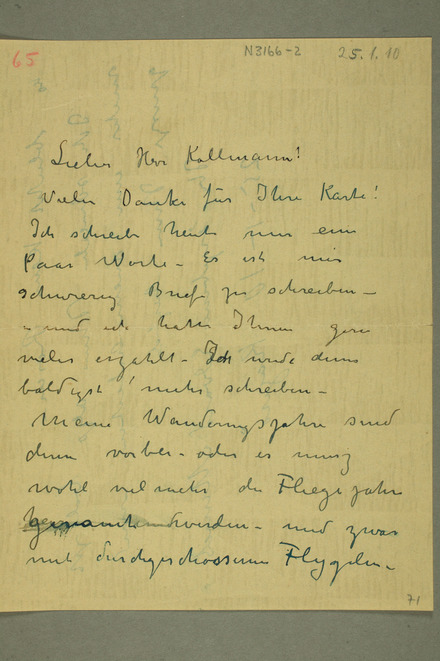 65
N3166-2
25.1.10
Lieber Herr Kollmann!
Vielen Danke für Ihre Karte!
Ich schreibe heute nur ein
Paar Worte - Es ist mir
schwierig Briefe zu schreiben -
- und ich hätte Ihnen gern
vieles erzählt - Ich werde denn
baldigst mehr schreiben -
Meine Wanderungsjahre sind
denn vorbei - oder es musz
wohl vielmehr die Fliegejahre
genannt werden - und zwar
mit durchgeschossenen Flygeln -
71